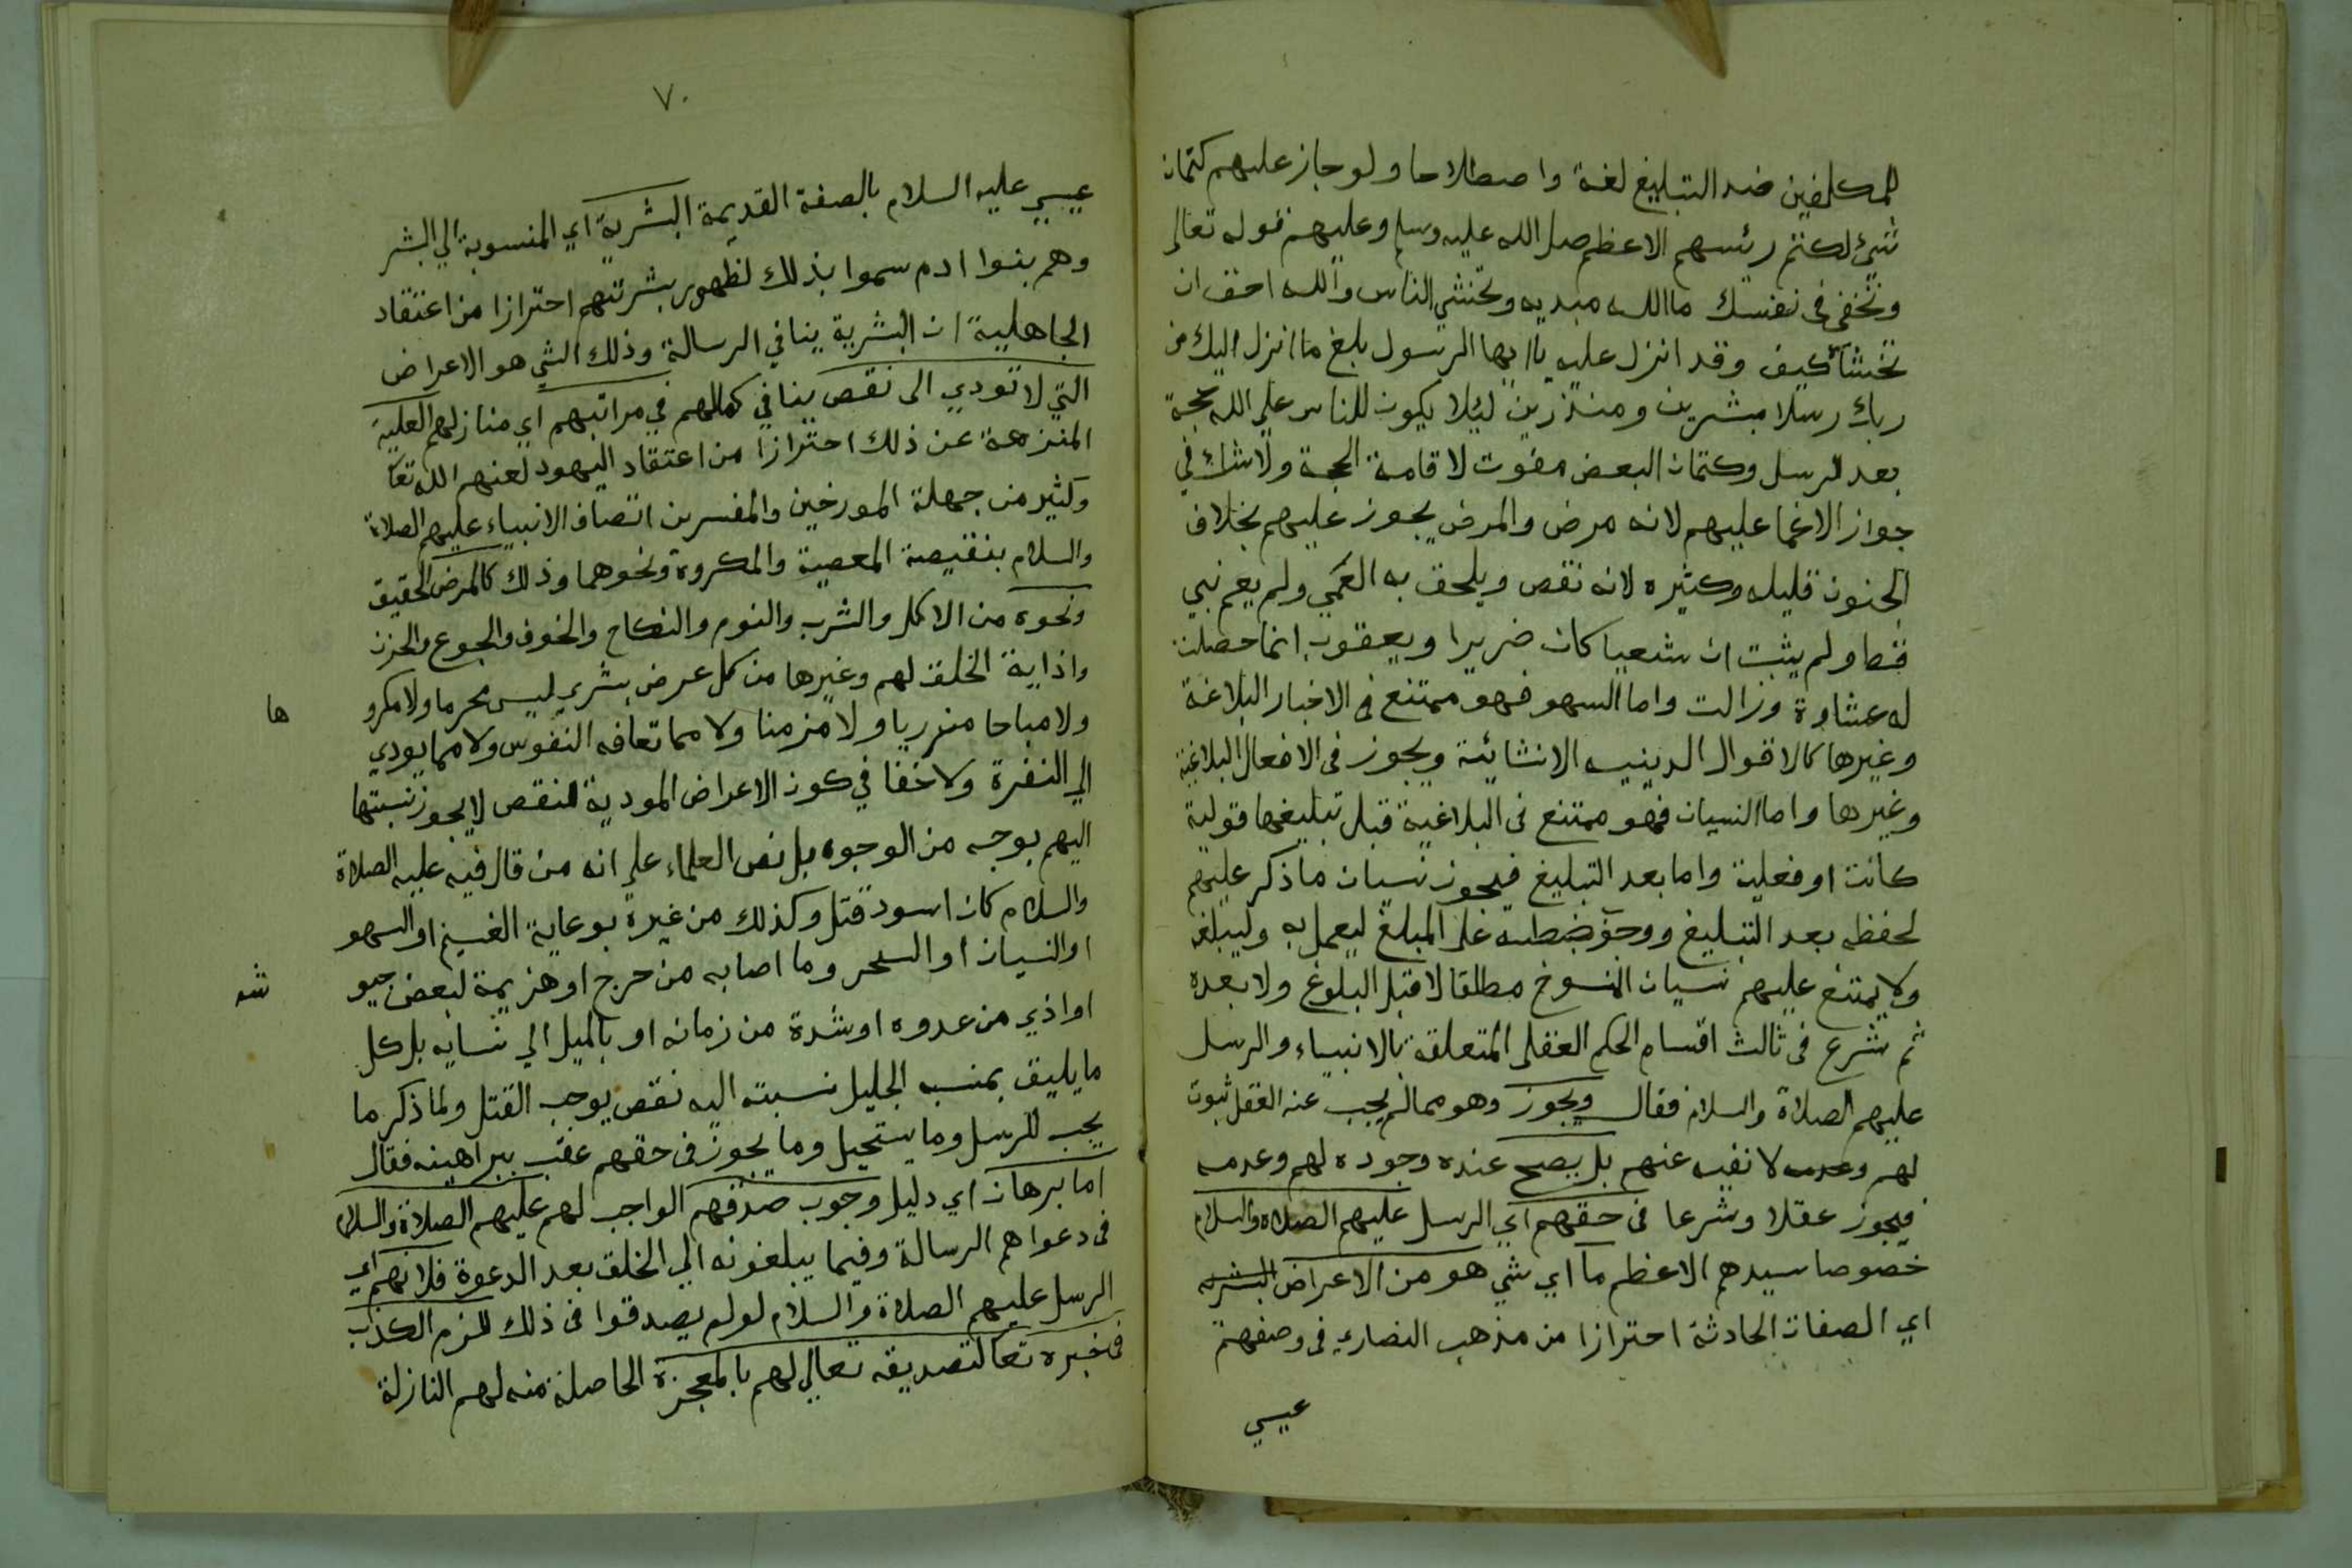 للمكلفين ضد التبليغ لغة واصطلاحا ولو جاز عليهم كتمان
شئ لكتم رئسهم الاعظم صلى الله عليه وسلم وعليهم قوله تعالى
وتخفي في نفسك ما الله مبديه وتخشي الناس والله احق ان
تخشاه كيف وقد انزل عليه ياايها الرسول بلغ ما انزل اليك من
ربك رسلا مبشرين ومنذرين ليلا يكون للناس علي الله حجة
بعد الرسل وكتمان البعض مفوت لاقامة الحجة ولا شك في
جواز الاغما عليهم لانه مرض والمرض يجوز عليهم بخلاف
الجنون قليله وكثيره لانه نقص ويلحق به العمي ولم يعم نبي
قط ولم يثبت ان شعيبا كان ضريرا ويعقوب انما حصلت
له غشاوة وزالت واما السهو فهو ممتنع في الاخبار البلاغية
وغيرها كالاقوال الدينيه الانشائية ويجوز في الافعال البلاغية
وغيرها واما النسيان فهو ممتنع في البلاغية قبل تبليغها قولية
كانت او فعلية واما بعد التبليغ فيجوز نسيان ما ذكر عليهم
لحفظه بعد التبليغ ووجوب ضبطه علي المبلغ ليعمل به وليبلغه
ولا يمتنع عليهم نسيان المنسوخ مطلقا لا قبل البلوغ ولا بعده
ثم شرع في ثالث اقسام الحكم العقلي المتعلقة بالانبياء والرسل
عليهم الصلاة والسلام فقال ويجوز وهو مما لم يجب عنه العقل ثبوت
لهم وعدمه لا نفيه عنهم بل يصح عنده وجوده لهم وعدمه
فيجوز عقلا وشرعا في حقهم اي الرسل عليهم الصلاه والسلام
خصوصا سيدهم الاعظم ما اي شي هو من الاعراض البشريه
اي الصفات الحادثة احترازا من مذهب النصاري في وصفهم
عيسي
٧٠
عيسي عليه السلام بالصفة القديمة البشرية اي المنسوبة الي البشر
وهم بنوا ادم سموا بذلك لظهور بشرتهم احترازا من اعتقاد
الجاهلية ان البشرية ينافي الرسالة وذلك الشي هو الاعراض
التي لا تودي الى نقص ينافي كمالهم في مراتبهم اي منازلهم العلية
المنزهة عن ذلك احترازا من اعتقاد اليهود لعنهم الله تعا
وكثير من جهلة المورخين والمفسرين اتصاف الانبياء عليهم الصلاة
والسلام بنقيصة المعصية والمكروه ونحوهما وذلك كالمرض الحقيق
ونحوه من الاكل والشرب والنوم والنكاح والخوف والجوع والحزن
واذاية الخلق لهم وغيرها من كل عرض بشري ليس محرما ولا مكرو
ها
ولا مباحا مزريا ولا مزمنا ولا مما تعافه النفوس ولا مما يودي
الي النفرة ولا خفا في كون الاعراض المودية للنقص لا يجوز نسبتها
اليهم بوجه من الوجوه بل نص العلماء علي انه من قال فيه عليه الصلاة
والسلام كان اسود قتل وكذلك من غيره برعاية الغنم او السهو
او النسيان او السحر وما اصابه من حرج او هزيمة لبعض جيو
شه
او اذي من عدوه او شدة من زمانه او بالميل الي نسايه بل كل
ما يليق بمنسبه الجليل نسبته اليه نقص يوجب القتل ولما ذكر ما
يجب للرسل وما يستحيل وما يجوز في حقهم عقب ببراهينه فقال
اما برهان اي دليل وجوب صدقهم الواجب لهم عليهم الصلاة والسلام
في دعواهم الرسالة وفيما يبلغونه الي الخلق بعد الدعوة فلانهم اي
الرسل عليهم الصلاة والسلام لو لم يصدقوا في ذلك للزم الكذب
في خبره تعا لتصديقه تعالي لهم بالمعجزة الحاصلة منه لهم النازلة